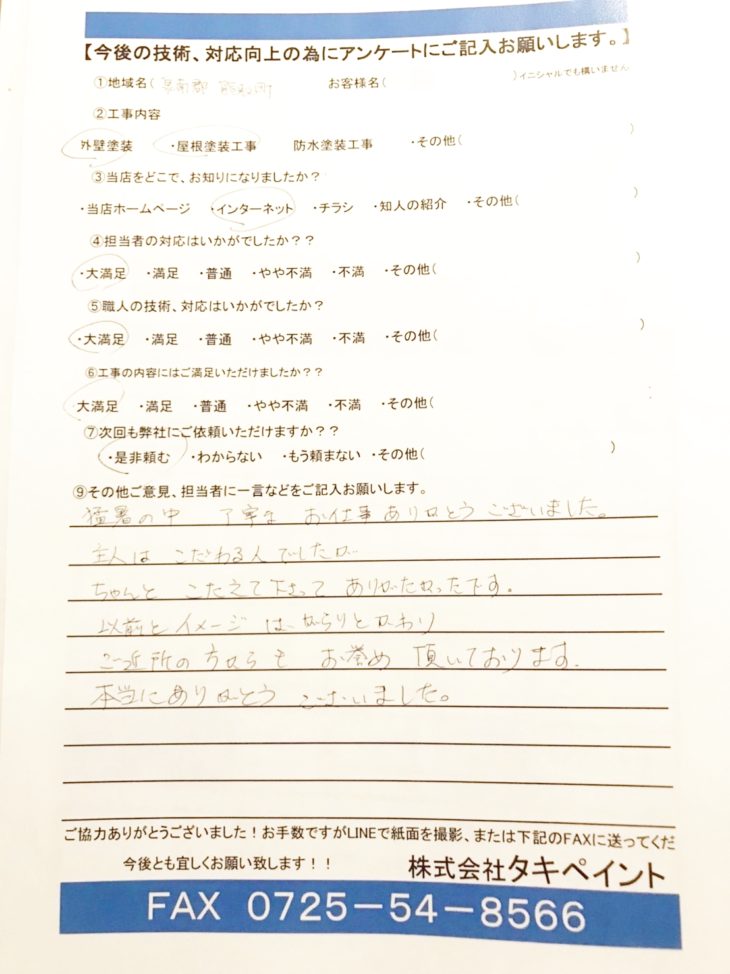 【今後の技術、対応向上の為にアンケートにご記入お願いします。】
①地域名( 泉南郡 熊取町 お客様名( )イニシャルでも構いません
②工事内容
外壁塗装 ・屋根塗装工事 防水塗装工事 ・その他( )
③当店をどこで、お知りになりましたか？
・当店ホームページ ・インターネット ・チラシ ・知人の紹介 ・その他( )
④担当者の対応はいかがでしたか？？
・大満足 ・満足 ・普通 ・やや不満 ・不満 ・その他( )
⑤職人の技術、対応はいかがでしたか？
・大満足 ・満足 ・普通 ・やや不満 ・不満 ・その他( )
⑥工事の内容にはご満足いただけましたか？？
大満足 ・満足 ・普通 ・やや不満 ・不満 ・その他(
⑦次回も弊社にご依頼いただけますか？？
・是非頼む ・わからない ・もう頼まない ・その他( )
⑨その他ご意見、担当者に一言などをご記入お願いします。
猛暑の中 丁寧な お仕事ありがとうございました。
主人は こだわる人でしたが
ちゃんと こたえて下さって ありがたかったです。
以前とイメージは、がらりとかわり
ご近所の方からも お誉め 頂いております.
本当にありがとう ございました。
ご協力ありがとうございました！お手数ですがLINEで紙面を撮影、または下記のFAXに送ってくだ
今後とも宜しくお願い致します！！ 株式会社タキペイント
FAX 0725－54－8566